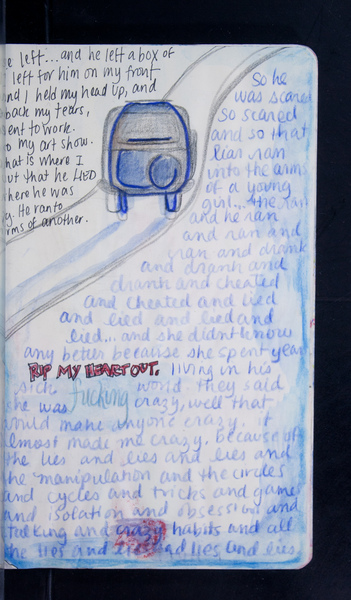 e left...and he left a box of
left for him on my front
nd I held my head up, and
back my tears,
ent to work.
o my art show.
hat is where I
ut that he LIED
here he was
g. He ran to
rms of another.
So he
was scared
so scared
and so that
liar ran
into the arms
of a young
girl...the ran
and he ran
and ran and
ran and drank
and drank and
drank and cheated
and cheated and lied
and lied and lied and
lied... and she didnt know
any better because she spent years
RIP MY HEART OUT. living in his
sick fucking world. they said
she was crazy, well that
would make anyone crazy. it
almost made me crazy. because of
the lies and lies and lies and
the manipulation and the circles
and cycles and tricks and games
and isolation and obsession and
talking and crazy habits and all
the lies and lies and lies and lies